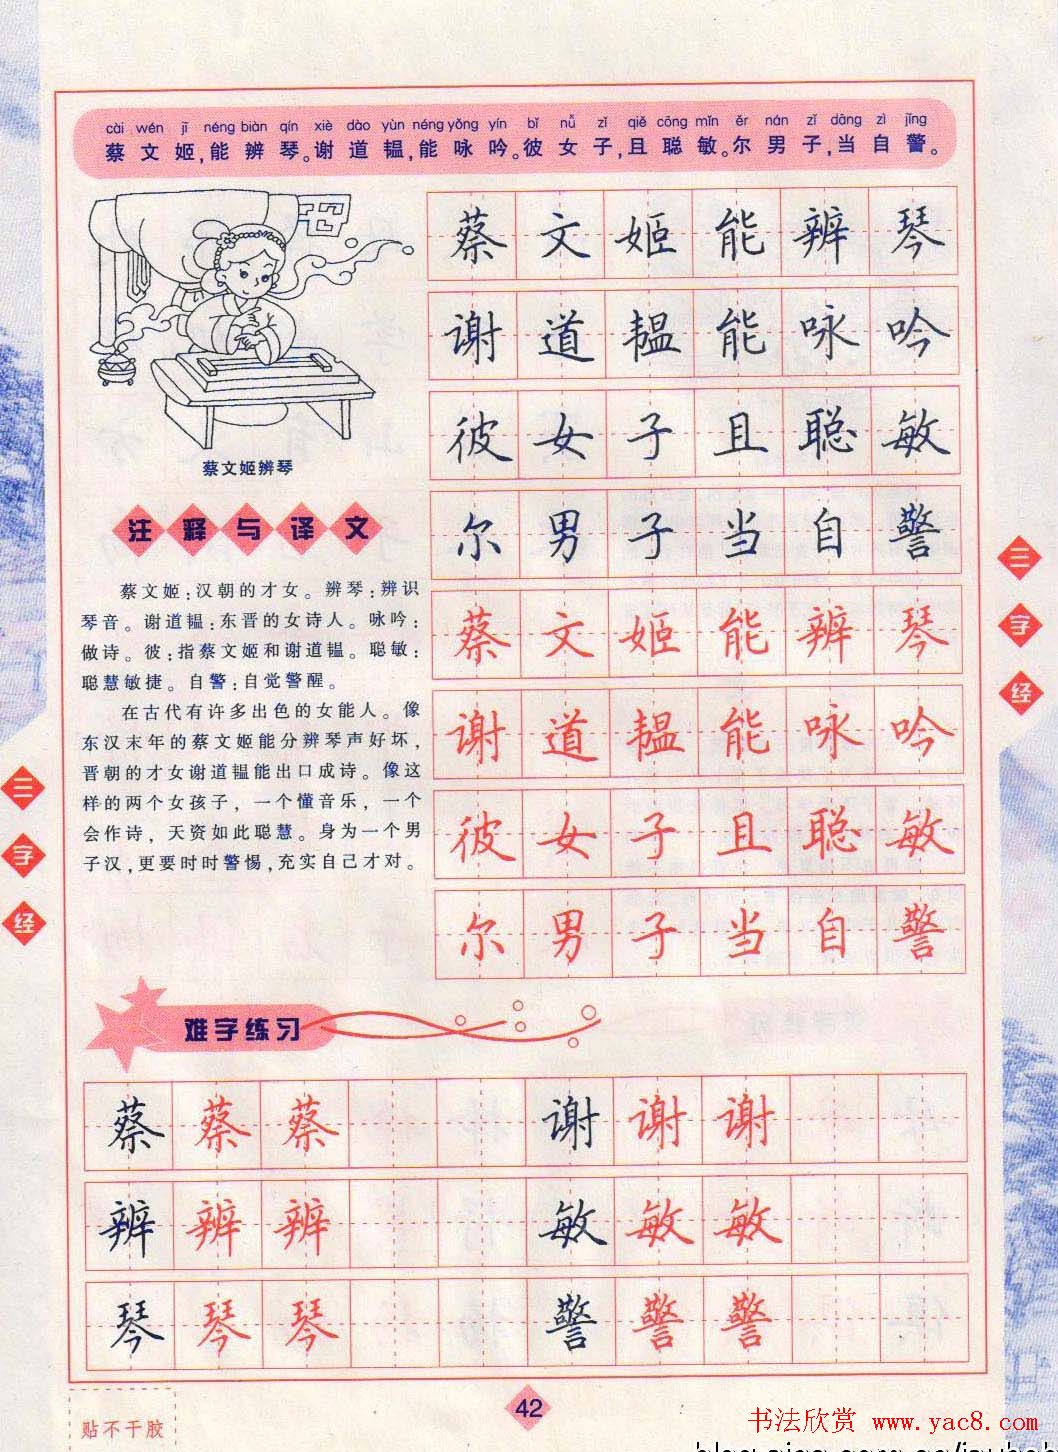 cài wén jī néng biàn qín xiè dào yùn néng yǒng yín bǐ nǚ zǐ qiě cōng mǐn ěr nán zǐ dāng zì jǐng
蔡文姬,能辨琴。谢道韫,能咏吟。彼女子,且聪敏。尔男子,当自警。
蔡文姬能辨琴
谢道韫能咏吟
彼女子且聪敏
尔男子当自警
蔡文姬能辨琴
谢道韫能咏吟
彼女子且聪敏
尔男子当自警
蔡文姬辨琴
注释与译文
蔡文姬:汉朝的才女。辨琴:辨识
琴音。谢道韫:东晋的女诗人。咏吟:
做诗。彼:指蔡文姬和谢道韫。聪敏:
聪慧敏捷。自警:自觉警醒。
在古代有许多出色的女能人。像
东汉末年的蔡文姬能分辨琴声好坏,
晋朝的才女谢道韫能出口成诗。像这
样的两个女孩子,一个懂音乐,一个
会作诗,天资如此聪慧。身为一个男
子汉,更要时时警惕,充实自己才对。
三字经
三字经
难字练习
蔡蔡蔡 谢谢谢
辨辨辨 敏敏敏
琴琴琴 警警警
贴不干胶
42
书法欣赏 www.yac8.com